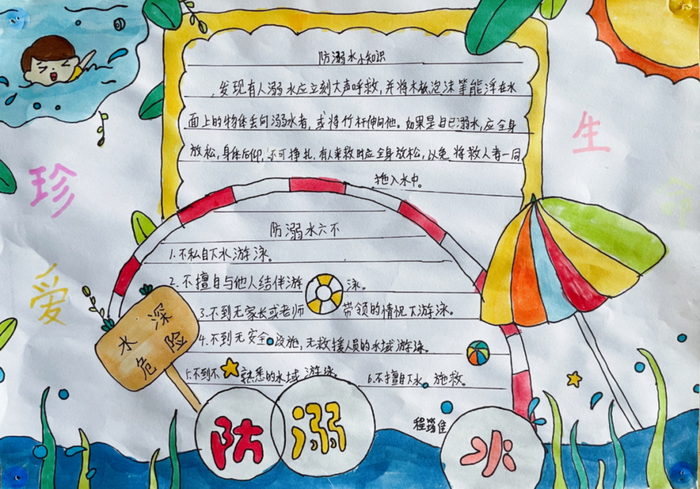 防溺水小知识
发现有人溺水应立刻大声呼救,并将木板泡沫等能浮在水
面上的物体丢向溺水者,或将竹杆伸向他。如果是自己溺水,应全身
放松,身体后仰,不可挣扎,有人来救时应全身放松,以免将救人者一同
拖入水中。
珍
爱
生
命
防溺水六不
1.不私自下水游泳。
2.不擅自与他人结伴游泳。
3.不到无家长或老师带领的情况下游泳。
4.不到无安全设施,无救援人员的水域游泳。
5.不到不熟悉的水域游泳
6.不擅自下水施救。
水深
危险
防溺水